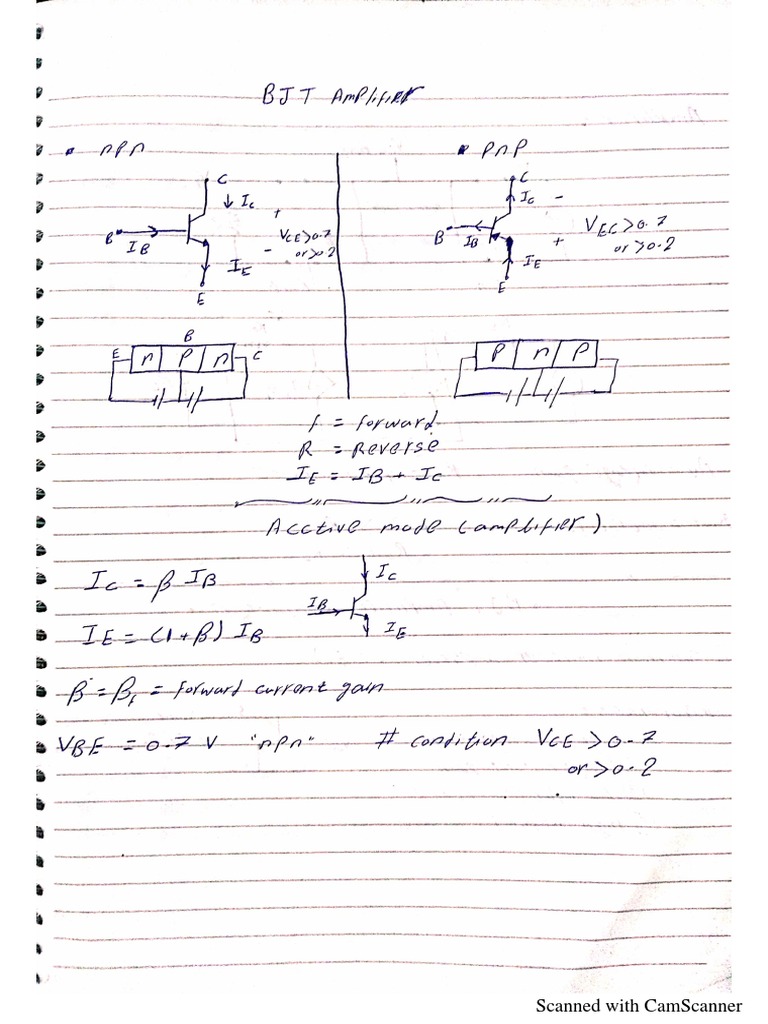 BJT Amplifier
• npn
• pnp
C
Ic
B
IB
+
VCE>0.7
-
or>0.2
IE
E
C
Ic
-
B
IB
+
VEC>0.7
or >0.2
IE
E
B
E n p n C
p n p
f = forward
R = Reverse
IE = IB + Ic
Acctive mode (amplifier)
Ic = β IB
IE = (1+β) IB
Ic
IB
IE
β = βf = forward current gain
VBE = 0.7 V "npn" # condition VCE >0.7
or >0.2
Scanned with CamScanner